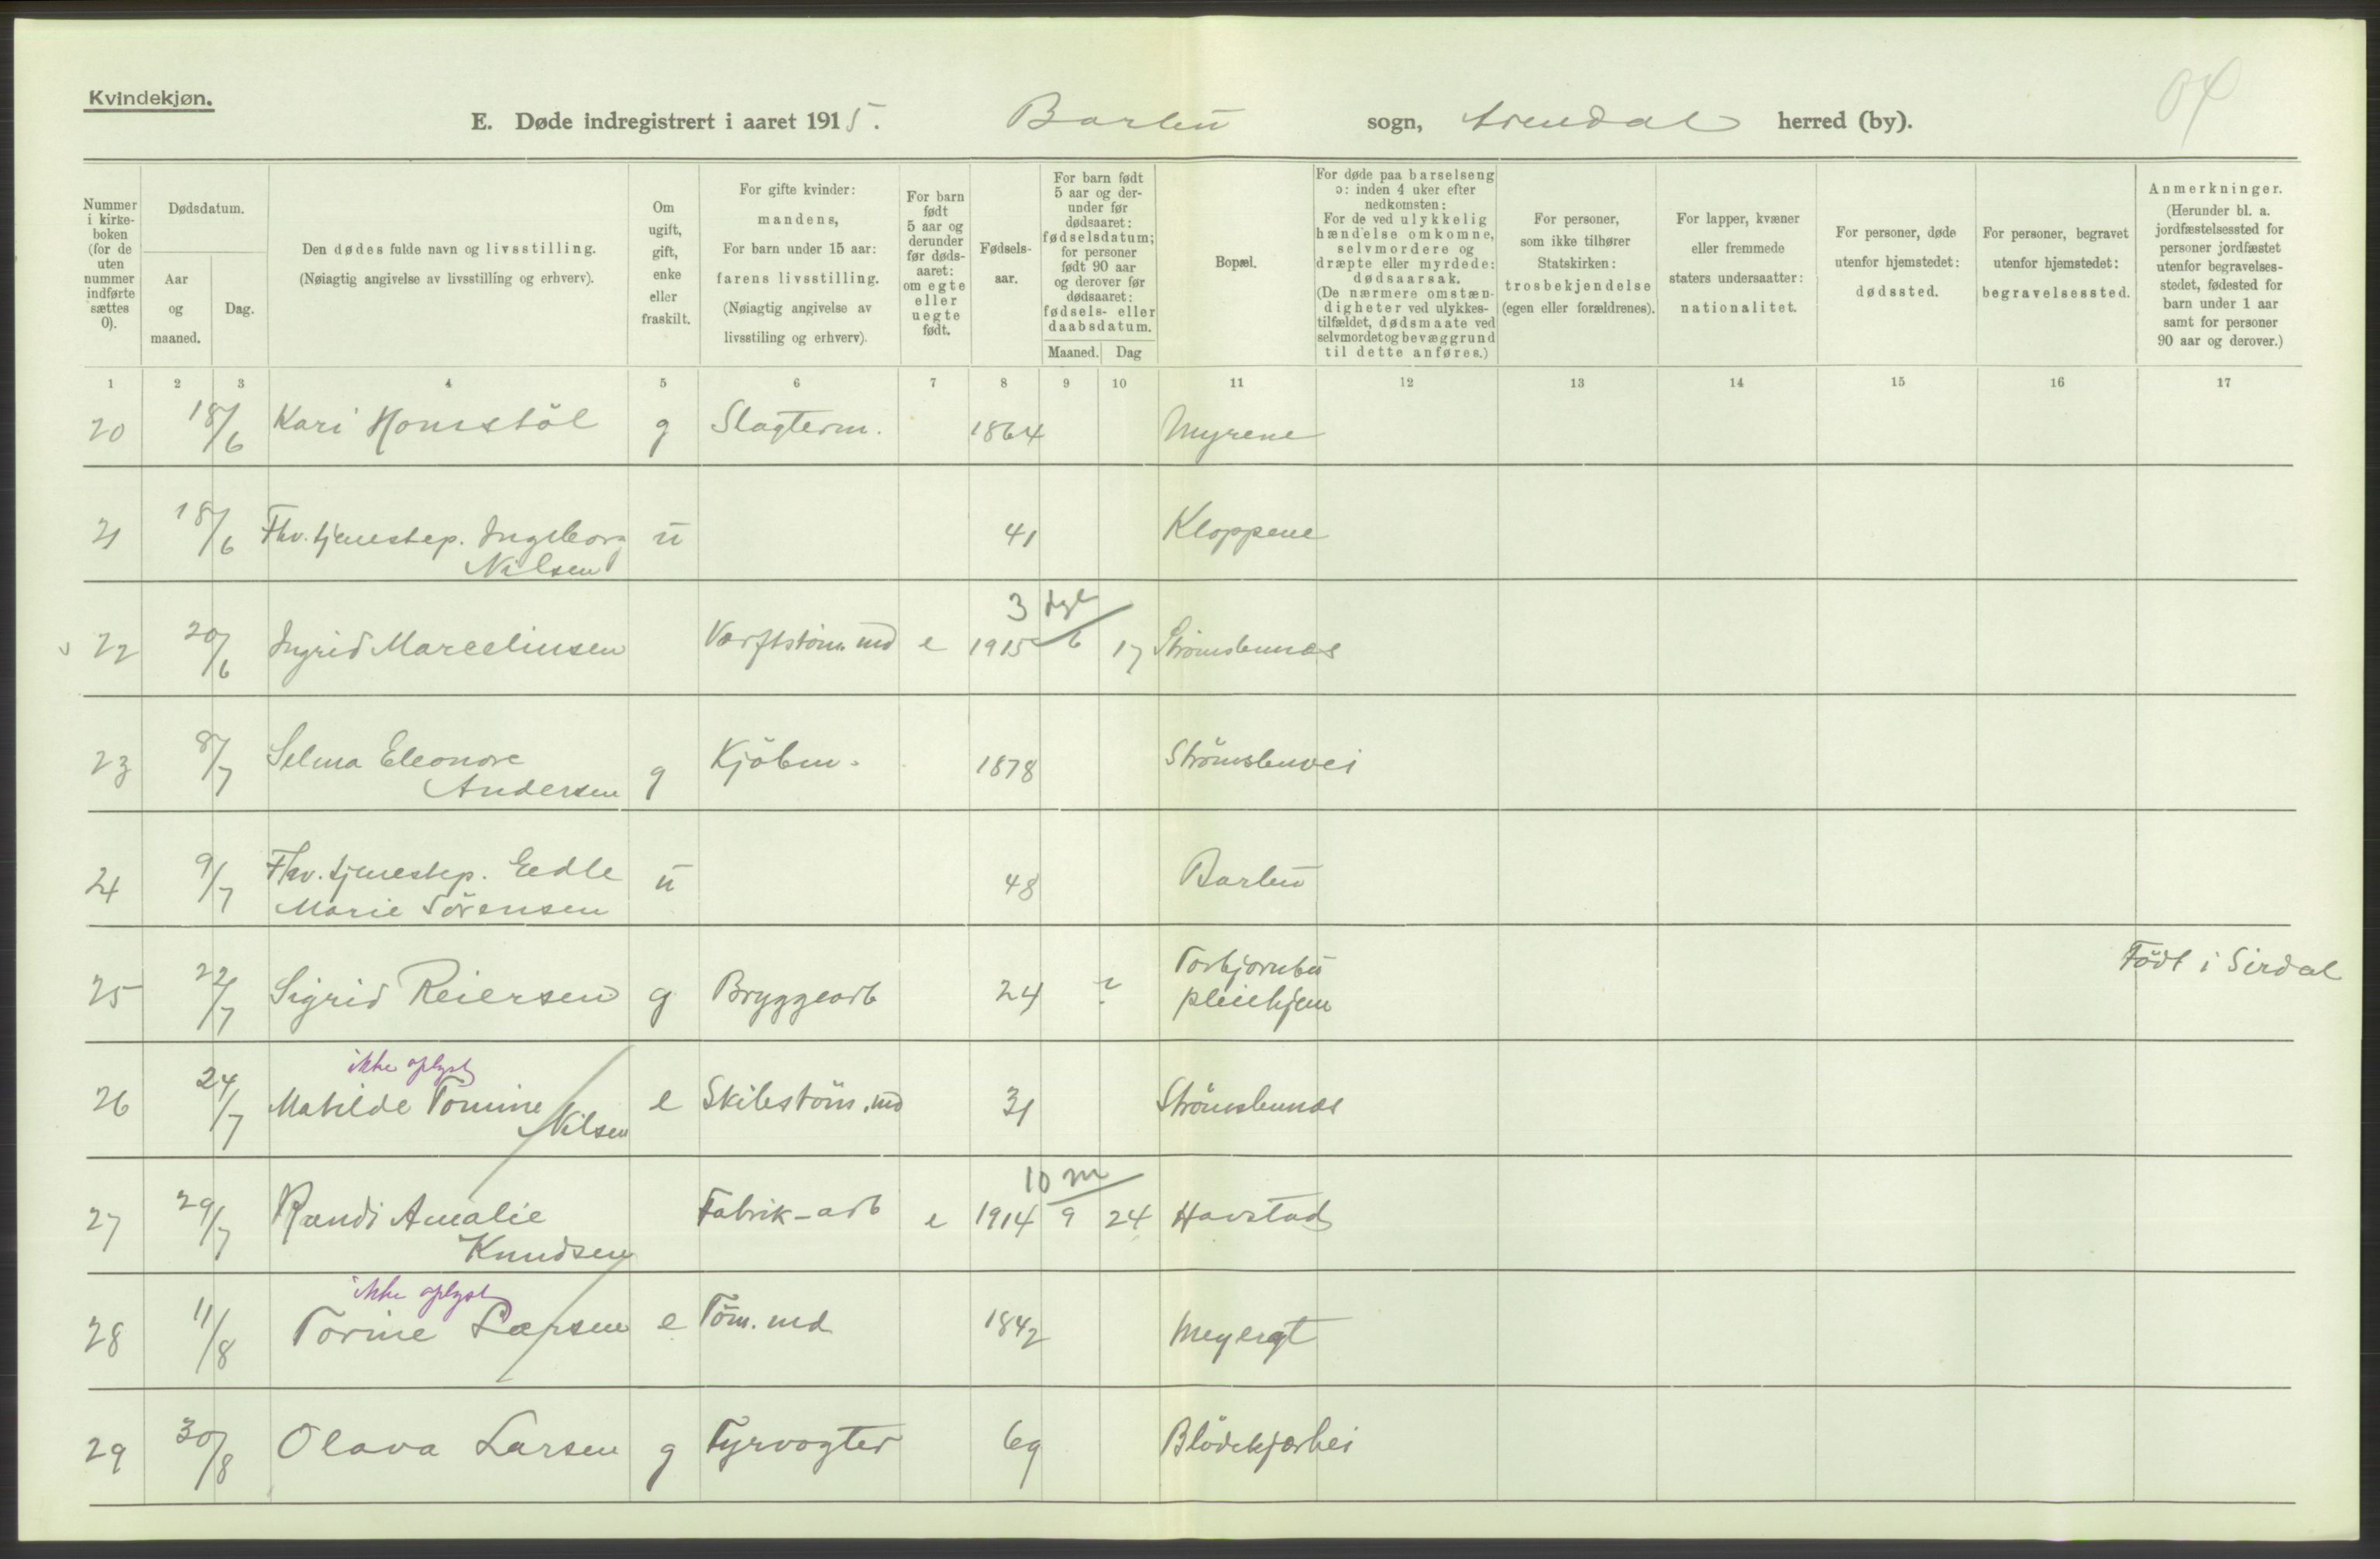 Kvindekjøn.
E. Døde indregistrert i aaret 1915. Barbu sogn, Arendal herred (by).
Nummer i kirke-boken (for de uten nummer indførte sættes 0).
Dødsdatum.
Aar og maaned.
Dag.
Den dødes fulde navn og livsstilling.
(Nøiagtig angivelse av livsstilling og erhverv).
Om ugift, gift, enke eller fraskilt.
For gifte kvinder: mandens, For barn under 15 aar: farens livsstilling. (Nøiagtig angivelse av livsstiling og erhverv).
For barn født 5 aar og derunder før døds-aaret: om egte eller uegte født.
Fødsels-aar.
For barn født 5 aar og der-under før dødsaaret: fødselsdatum; for personer født 90 aar og derover før dødsaaret: fødsels- eller daabsdatum.
Maaned. Dag
Bopæl.
For døde paa barselseng ɔ: inden 4 uker efter nedkomsten: For de ved ulykkelig hændelse omkomne, selvmordere og dræpte eller myrdede: dødsaarsak. (De nærmere omstæn-digheter ved ulykkes-tilfældet, dødsmaate ved selvmordet og bevæggrund til dette anføres.)
For personer, som ikke tilhører Statskirken: trosbekjendelse (egen eller forældrenes).
For lapper, kvæner eller fremmede staters undersaatter: nationalitet.
For personer, døde utenfor hjemstedet: dødssted.
For personer, begravet utenfor hjemstedet: begravelsessted.
Anmerkninger. (Herunder bl. a. jordfæstelsessted for personer jordfæstet utenfor begravelses-stedet, fødested for barn under 1 aar samt for personer 90 aar og derover.)
1 2 3 4 5 6 7 8 9 10 11 12 13 14 15 16 17
20 18/6 Kari Homstöl g Slagterm. 1864 Myrene
21 18/6 Fhv. tjenestep. Ingeborg ü 41 Kloppene
Nilsen
3 dge
22 20/6 Ingrid Marcelinsen Varftstöm. md e 1915 6 17 Strömsbunes
23 8/7 Selma Eleonore Kjöbm. 1878 Strömsbuvei
Andersen g
24 9/7 Fhv. tjenestep. Eedle ü 48 Barbu
Marie Sörensen
25 22/7 Sigrid Reiersen g Bryggearb 24 ? Torbjørnbu Födt i Sirdal
pleiehjem
ikke oplyst
26 24/7 Matilde Tomine e Skibstöm. md 31 Strömsbunes
Nilsen
10 m
27 29/7 Randi Amalie Fabrik-arb e 1914 9 24 Havstad
Knudsen
ikke oplyst
28 11/8 Torine Larsen e Töm. md 1842 Meyergt
29 30/8 Olava Larsen g Fyrvogter 69 Blödekjærhei